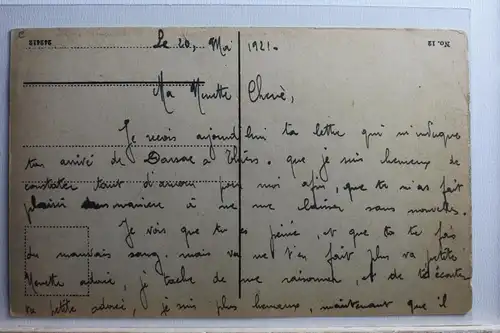 No. 12
Le 20, Mai 1921.
Ma Nénette Cherie,
Je reçois aujourd'hui ta lettre qui m'indique
ton arrivé de à que je suis heureux de
constater tant d'amour pour moi afin, que tu m'as fait
plaisir manière à ne me laisser sans nouvelles.
Je vois que tu es peiné, et que tu te fais
du mauvais sang. mais va ne t'en fait plus va petite
Nénette adoré, je tache de me raisonner, et de t'écouter
va petite adoré, je suis plus heureux, maintenant que il